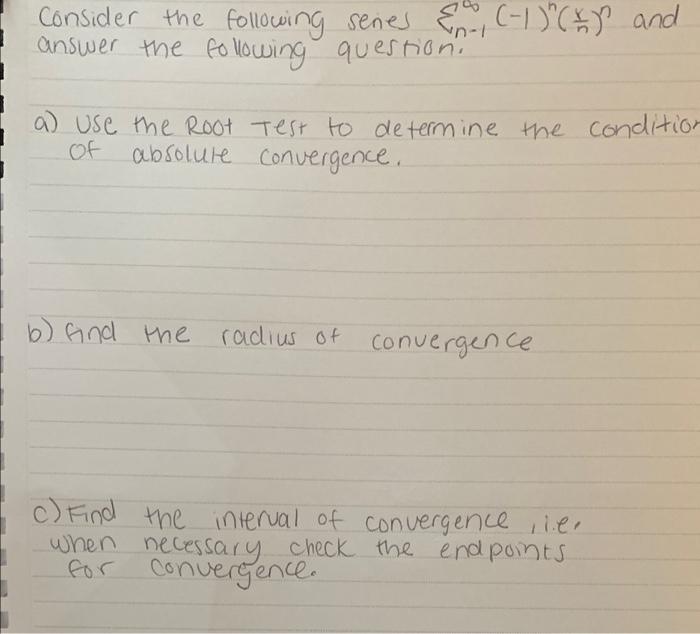 Consider the following series ∑_{n-1}^∞ (-1)^n (x/n)^n and
answer the following question.
a) Use the Root Test to determine the condition
of absolute convergence.
b) find the radius of convergence
c) Find the interval of convergence, i.e.
when necessary check the endpoints
for convergence.